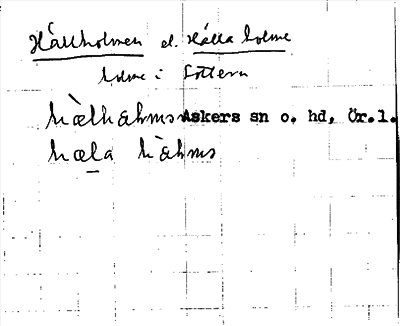 Hállholmen el. Hálla holme
holme i Sottern
hælhəhms Askers sn o. hd, Ör.l.
hæla həhms